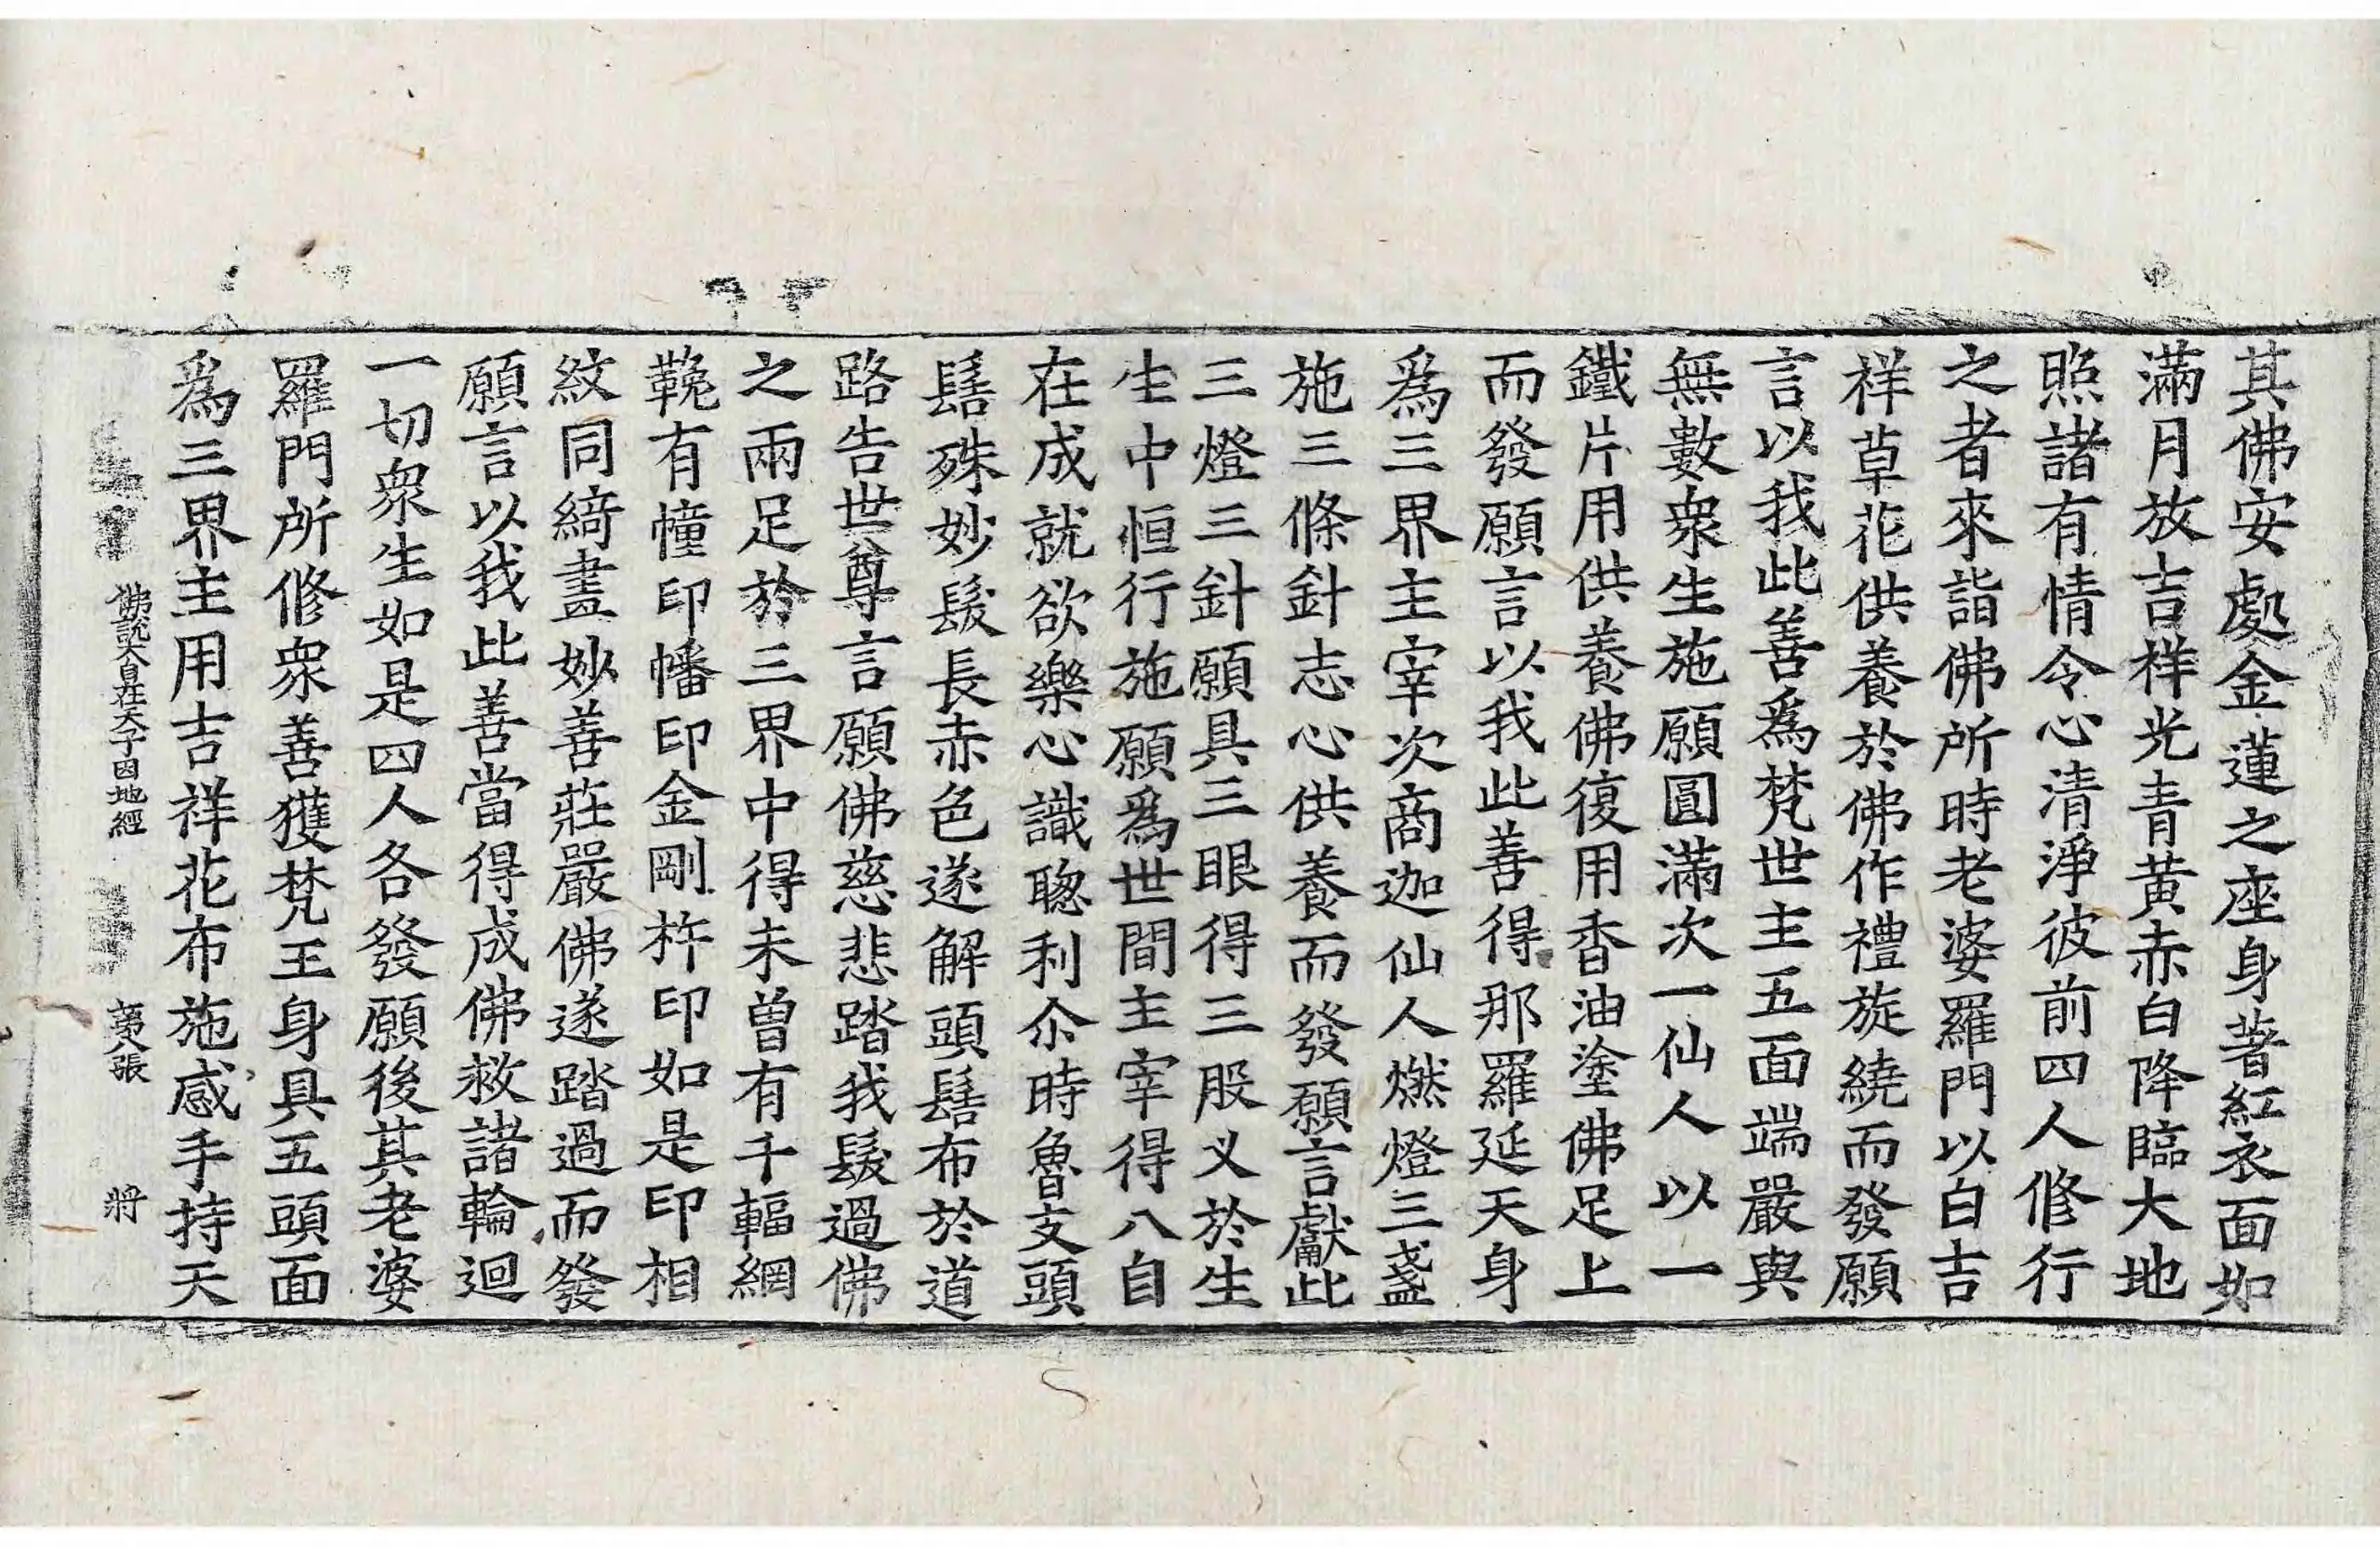 其佛安處金蓮之座身著紅衣面如
滿月放吉祥光青黃赤白降臨大地
照諸有情令心清淨彼前四人修行
之者來詣佛所時老婆羅門以白吉
祥草花供養於佛作禮旋繞而發願
言以我此善爲梵世主五面端嚴與
無數衆生施願圓滿次一仙人以一
鐵片用供養佛復用香油塗佛足上
而發願言以我此善得那羅延天身
爲三界主宰次商迦仙人燃燈三盞
施三條針志心供養而發願言獻此
三燈三針願具三眼得三股义於生
生中恒行施願爲世間主宰得八自
在成就欲樂心識聰利尒時魯支頭
髻殊妙髮長赤色遂解頭髻布於道
路告世尊言願佛慈悲踏我髮過佛
之兩足於三界中得未曾有千輻網
鞔有幢印幡印金剛杵印如是印相
紋同綺畫妙善莊嚴佛遂踏過而發
願言以我此善當得成佛救諸輪迴
一切衆生如是四人各發願後其老婆
羅門所修衆善獲梵王身具五頭面
爲三界主用吉祥花布施感手持天
佛說大自在天子因地經 張 將